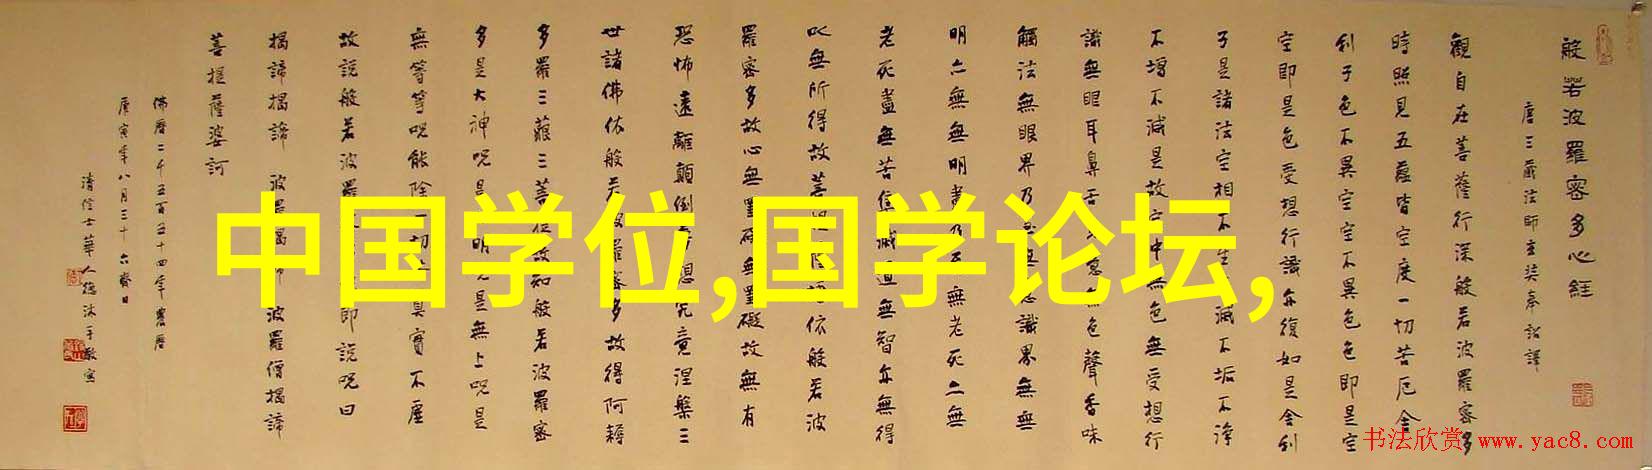 般若波羅密多心經
唐三藏法師玄奘奉詔譯
觀自在菩薩行深般若波羅密多
時照見五蘊皆空度一切苦厄舍
利子色不異空空不異色色即是空
空即是色受想行識亦復如是舍利
子是諸法空相不生不滅不垢不淨
不增不減是故空中無色無受想行
識無眼耳鼻舌 意無色聲香味
觸法無眼界乃至無意識界無無
明亦無無明盡乃至無老死亦無
老死盡無苦集滅道無智亦無得
以無所得故菩提薩埵依般若波
羅密多故心無罣礙無罣礙故無有
恐怖遠離顛倒夢想究竟涅槃三
世諸佛依般若波羅密多故得阿耨
多羅三藐三菩提故知般若波羅密
多是大神咒是大明咒是無上咒是
無等等咒能除一切 真實不虛
故說般若波羅 即說咒曰
揭諦揭諦 波羅揭諦 波羅僧揭諦
菩提薩婆訶
佛曆二千五百五十四年農曆
庚寅年八月三十六齋日
清信士華人德沐手敬寫
中国学位,国学论坛,
书法欣赏 www.yac8.com